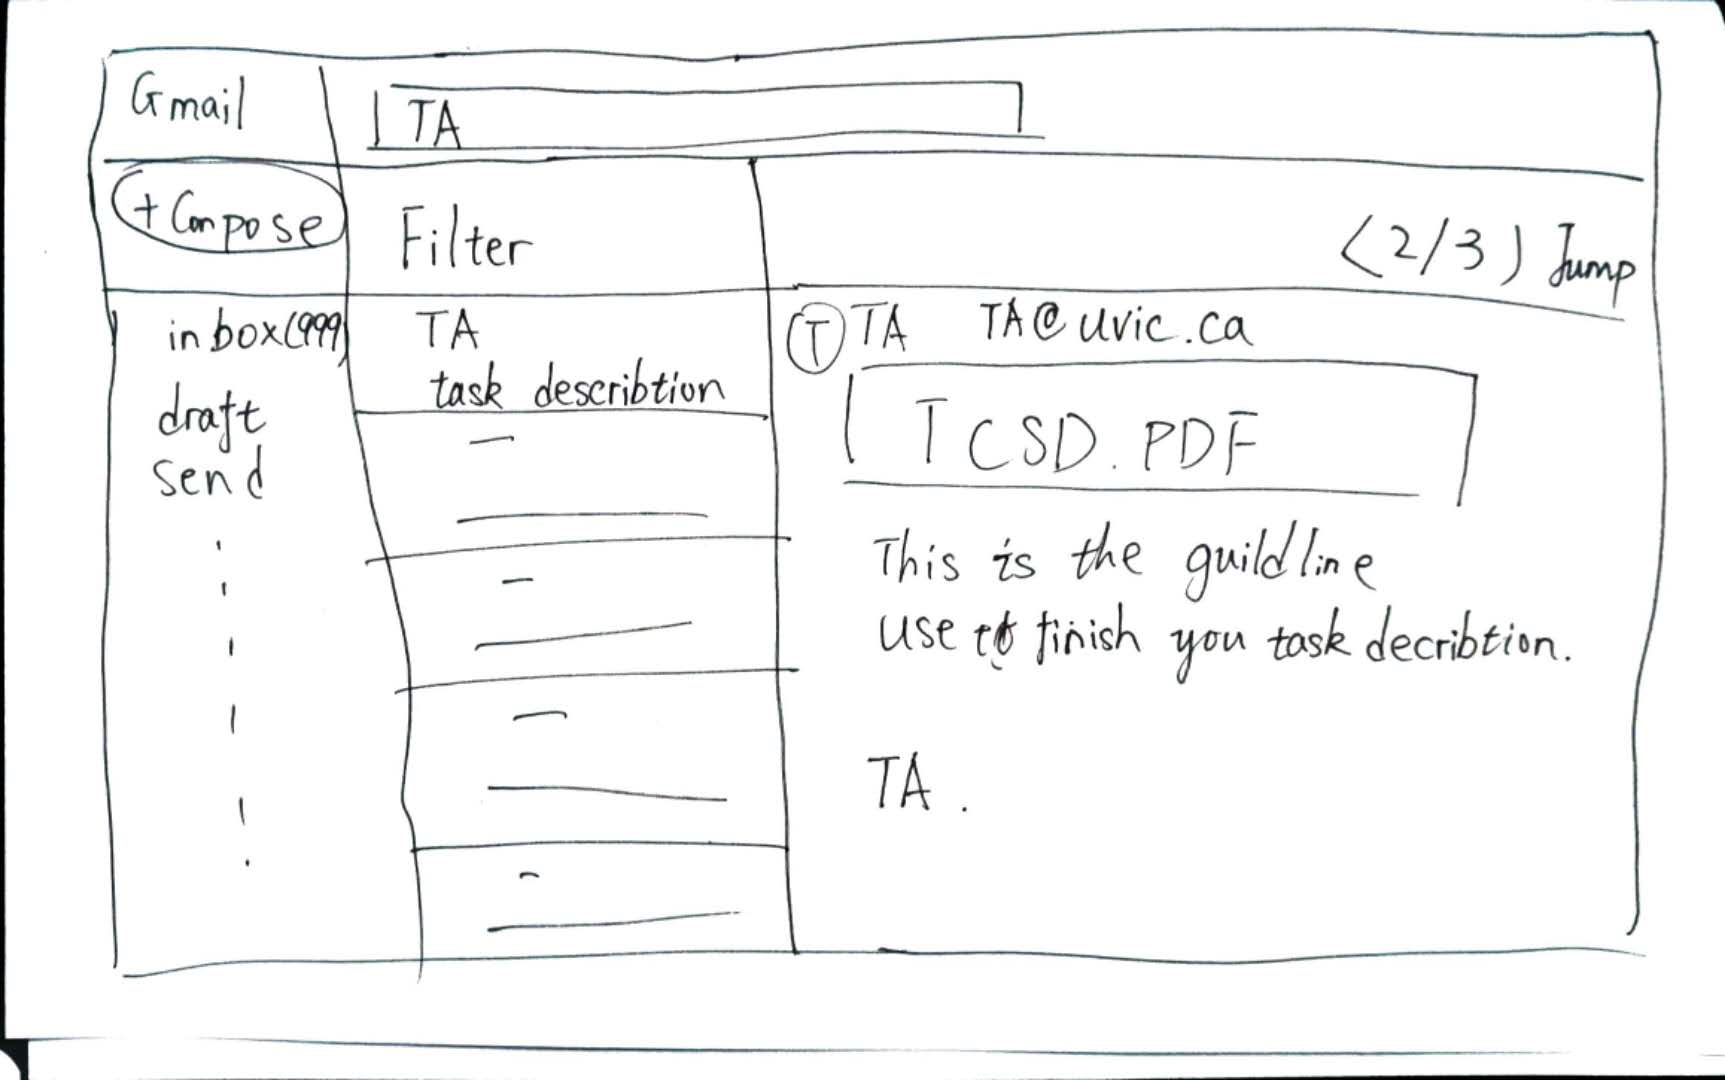 Gmail
TA
+ Compose
Filter
<2/3) Jump
inbox(999)
draft
send
TA
task describtion
T TA TA@uvic.ca
TCSD.PDF
This is the guildline
use to finish you task decribtion.
TA.